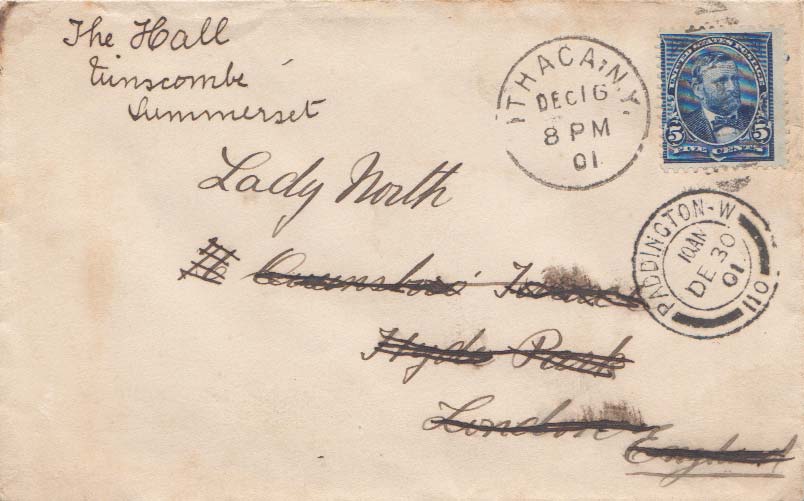 The Hall
Winscombe
Summerset
ITHACA, N.Y.
DEC 16
8 PM
01
UNITED STATES POSTAGE
5 5
FIVE CENTS
Lady North
PADDINGTON-W
10 AM
DE 30
01
110
16 Queensboro' Terrace
Hyde Park
London
England